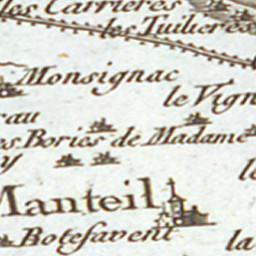 les Carrieres
les Tuilieres
Monsignac
le Vign
eau
es Bories de Madame
y
Manteil
Botefavent
le
la